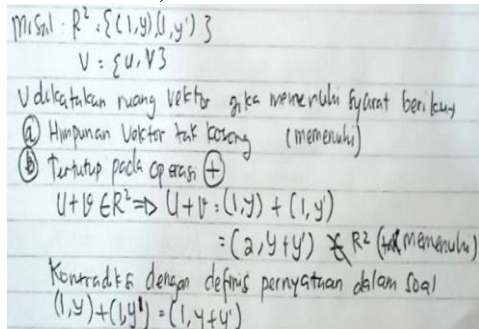 Misal : R² : {(1,y)(1,y')}
V = {U,V}
V dikatakan ruang vektor jika memenuhi syarat berikut
(a) Himpunan Vektor tak kosong (memenuhi)
(b) Tertutup pada operasi (+)
U+V ∈ R² ⇒ U+V : (1,y) + (1,y')
= (2,y+y') ∉ R² (tak memenuhi)
Kontradiksi dengan definisi pernyataan dalam soal
(1,y)+(1,y') = (1,y+y')